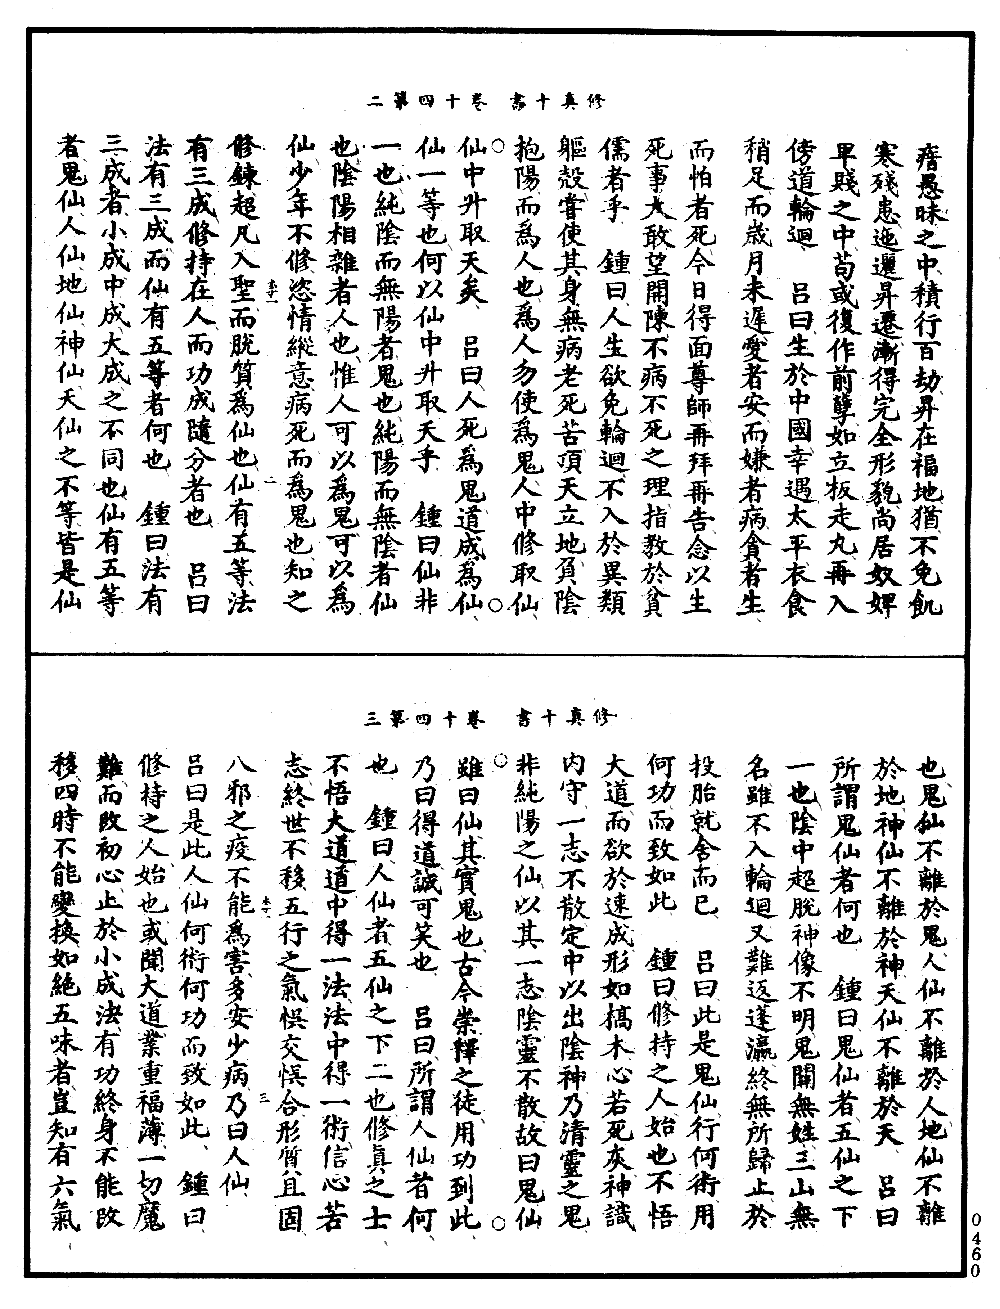 修真十書　卷十四第二
瘖愚昧之中積行百劫昇在福地猶不免飢
寒殘患迤邐昇遷漸得完全形貌尚居奴婢
卑賤之中苟或復作前孽如立板走丸再入
傍道輪迴　呂曰生於中國幸遇太平衣食
稍足而歲月未遲愛者安而嫌者病貪者生
而怕者死今日得面尊師再拜再告念以生
死事大敢望開陳不病不死之理指教於貧
儒者乎　鍾曰人生欲免輪迴不入於異類
軀殼嘗使其身無病老死苦頂天立地負陰
抱陽而爲人也爲人勿使爲鬼人中修取仙
仙中升取天矣　呂曰人死爲鬼道成爲仙
仙一等也何以仙中升取天乎　鍾曰仙非
一也純陰而無陽者鬼也純陽而無陰者仙
也陰陽相雜者人也惟人可以爲鬼可以爲
仙少年不修恣情縱意病死而爲鬼也知之
修鍊超凡入聖而脫質爲仙也仙有五等法
有三成修持在人而功成隨分者也　呂曰
法有三成而仙有五等者何也　鍾曰法有
三成者小成中成大成之不同也仙有五等
者鬼仙人仙地仙神仙天仙之不等皆是仙
修真十書　卷十四第三
也鬼仙不離於鬼人仙不離於人地仙不離
於地神仙不離於神天仙不離於天　呂曰
所謂鬼仙者何也　鍾曰鬼仙者五仙之下
一也陰中超脫神像不明鬼關無姓三山無
名雖不入輪迴又難返蓬瀛終無所歸止於
投胎就舍而已　呂曰此是鬼仙行何術用
何功而致如此　鍾曰修持之人始也不悟
大道而欲於速成形如槁木心若死灰神識
內守一志不散定中以出陰神乃清靈之鬼
非純陽之仙以其一志陰靈不散故曰鬼仙
雖曰仙其實鬼也古今崇釋之徒用功到此
乃曰得道誠可笑也　呂曰所謂人仙者何
也　鍾曰人仙者五仙之下二也修真之士
不悟大道道中得一法法中得一術信心苦
志終世不移五行之氣悞交悞合形質且固
八邪之疫不能爲害多安少病乃曰人仙
呂曰是此人仙何術何功而致如此　鍾曰
修持之人始也或聞大道業重福薄一切魔
難而改初心止於小成法有功終身不能改
移四時不能變換如絕五味者豈知有六氣
0460